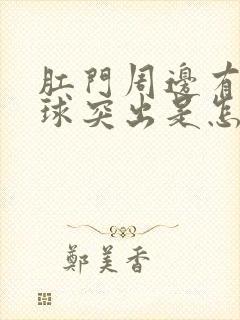 肛門周邊有
球突出是怎
鄭美香